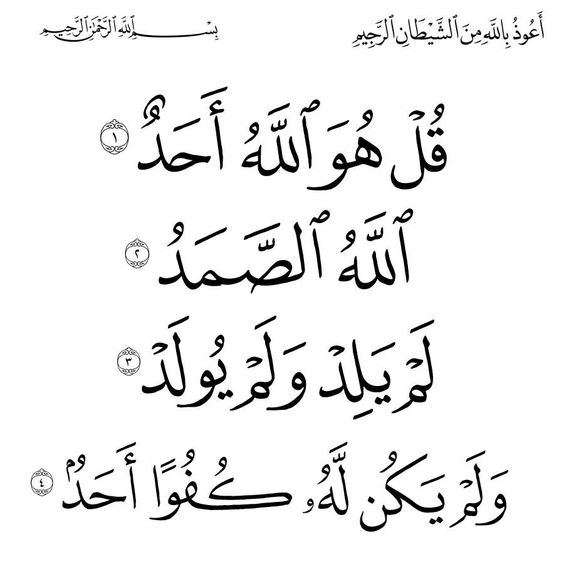 أَعُوذُ بِاللَّهِ مِنَ ٱلشَّيْطَانِ ٱلرَّجِيمِ
بِسْمِ ٱللَّهِ ٱلرَّحْمَٰنِ ٱلرَّحِيمِ
قُلْ هُوَ ٱللَّهُ أَحَدٌ ١
ٱللَّهُ ٱلصَّمَدُ ٢
لَمْ يَلِدْ وَلَمْ يُولَدْ ٣
وَلَمْ يَكُن لَّهُۥ كُفُوًا أَحَدٌۢ ٤